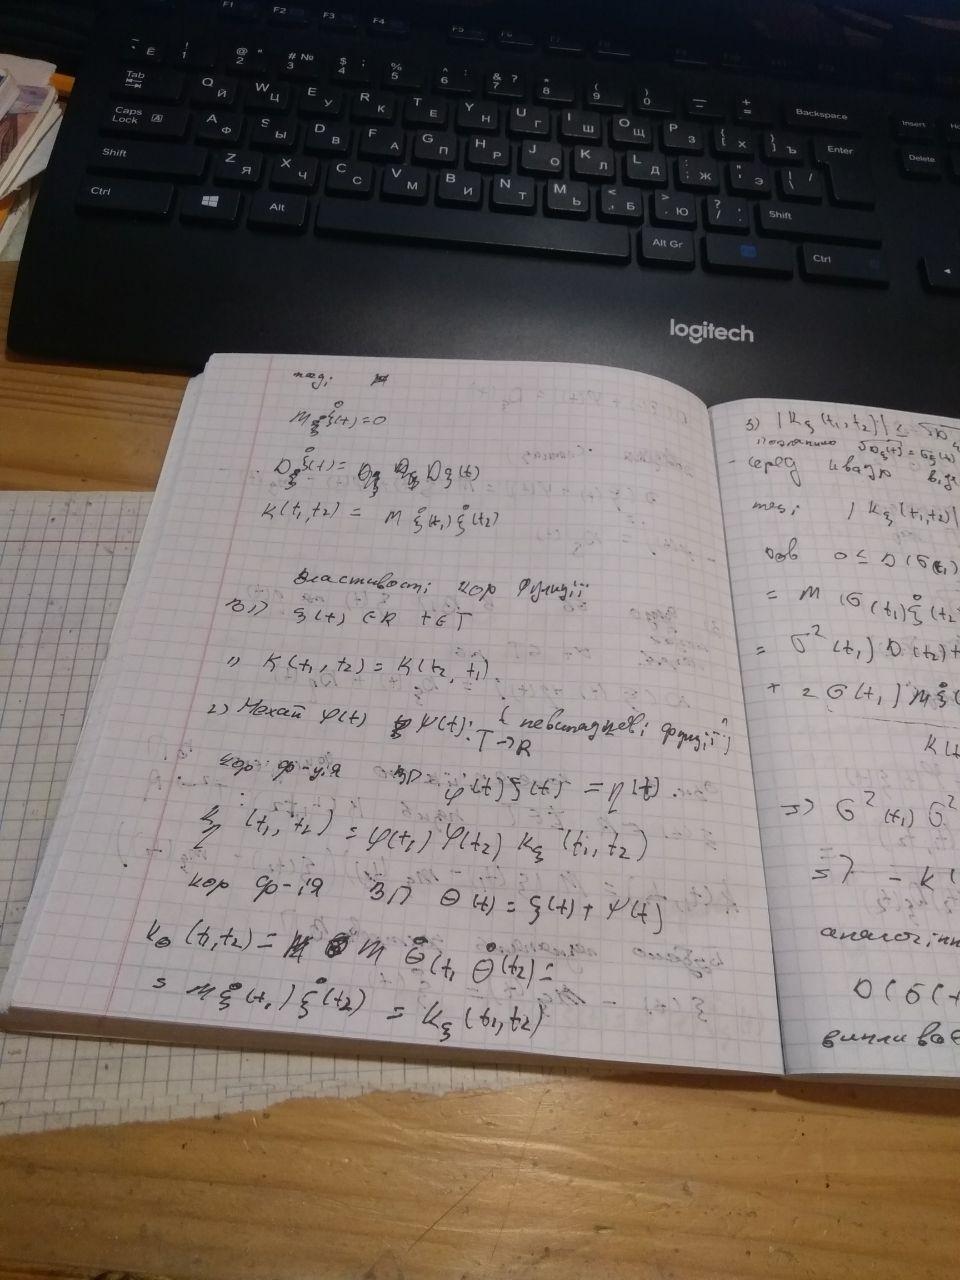 F1 F2 F3 F4 F5 F6
Ё ! 1 @ " 2 # № 3 $ ; 4 % 5 ^ : 6 & ? 7 * 8 ( 9 ) 0 — - + = Backspace Insert
Tab Q Й W Ц E У R К T Е Y Н U Г I Ш O Щ P З { [ Х } ] Ъ Enter Delete
Caps Lock A A Ф S Ы D В F А G П H Р J О K Л L Д : ; Ж " ' Э | \ /
Shift Z Я X Ч C С V М B И N Т M Ь < , Б > . Ю ? / . Shift
Ctrl Alt Alt Gr Ctrl
logitech
тоді
M ξ̊(t) = 0
D ξ̊(t) = Dξ(t)
K(t₁,t₂) = M ξ̊(t₁) ξ̊(t₂)
Властивості кор функції
ВП ξ(t) ∈ R t ∈ T
1) K(t₁,t₂) = K(t₂,t₁)
2) Нехай φ(t) ψ(t): T→R ( невипадкові функції )
кор. ф-ція ВП φ(t) ξ(t) = η(t).
(t₁,t₂) = φ(t₁) φ(t₂) Kξ (t₁,t₂)
кор ф-ія ВП Θ(t) = ξ(t) + ψ(t)
KΘ (t₁,t₂) = M Θ̊(t₁ Θ̊(t₂) =
= M ξ̊(t₁) ξ̊(t₂) = Kξ (t₁,t₂)
3) |Kξ (t₁,t₂)| ≤
позначимо √Dξ(t) = σξ(t)
- серед квадр відх
тоді |Kξ (t₁,t₂)|
дов 0 ≤ D(σ(t₁)
= M (σ(t₁) ξ̊(t₂
= σ²(t₁) D(t₂) +
+ 2σ(t₁) M ξ̊(
K(t
=> σ²(t₁) σ²
=> - K(
аналогічн
D(σ(t
випливає